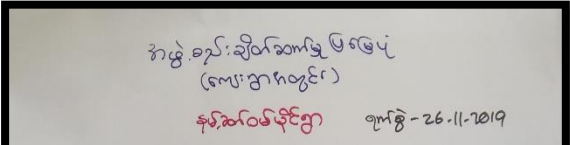 အဖွဲ့စည်းချိတ်ဆက်မှုပြမြေပုံ
(ကျေးရွာအတွင်း)
နမ့်ဆာ်ဝမ်မိုင်ရွာ ရက်စွဲ - 26.11.2019